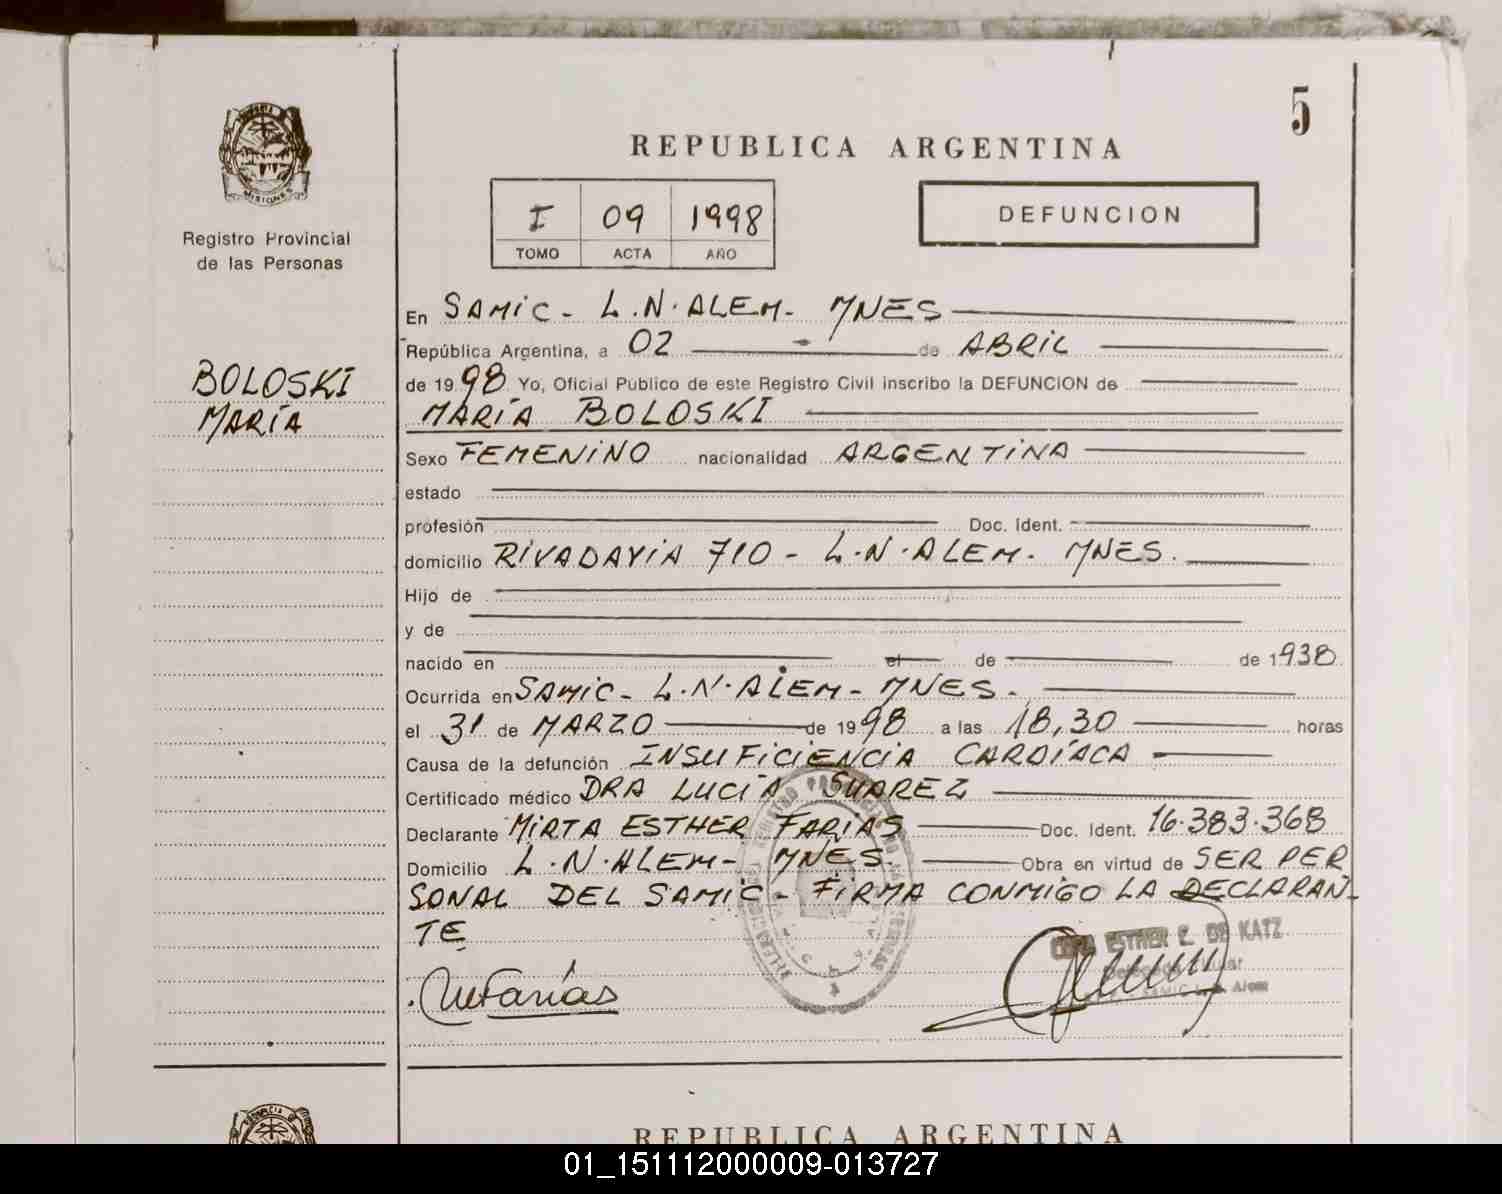 5
REPUBLICA ARGENTINA
MISIONES
Registro Provincial
de las Personas
I 09 1998
TOMO ACTA AÑO
DEFUNCION
BOLOSKI
MARÍA
En SAMIC - L.N.ALEM - MNES
República Argentina, a 02 de ABRIL
de 1998 Yo, Oficial Público de este Registro Civil inscribo la DEFUNCION de
MARÍA BOLOSKI
Sexo FEMENINO nacionalidad ARGENTINA
estado
profesión Doc. Ident.
domicilio RIVADAVIA 710 - L.N.ALEM. MNES.
Hijo de
y de
nacido en el de de 1938
Ocurrida en SAMIC - L.N.ALEM - MNES.
el 31 de MARZO de 1998 a las 18,30 horas
Causa de la defunción INSUFICIENCIA CARDÍACA
Certificado médico DRA LUCÍA SUAREZ
Declarante MIRTA ESTHER FARIAS Doc. Ident. 16.383.368
Domicilio L.N.ALEM - MNES. Obra en virtud de SER PER
SONAL DEL SAMIC - FIRMA CONMIGO LA DECLARAN-
TE
ESTHER E. DE KATZ
Farías
REPUBLICA ARGENTINA
01_151112000009-013727